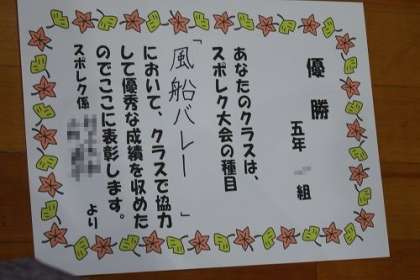 優勝
五年 組
あなたのクラスは、
スポレク大会の種目
「風船バレー」
において、クラスで協力
して優秀な成績を収めた
のでここに表彰します。
スポレク係 より